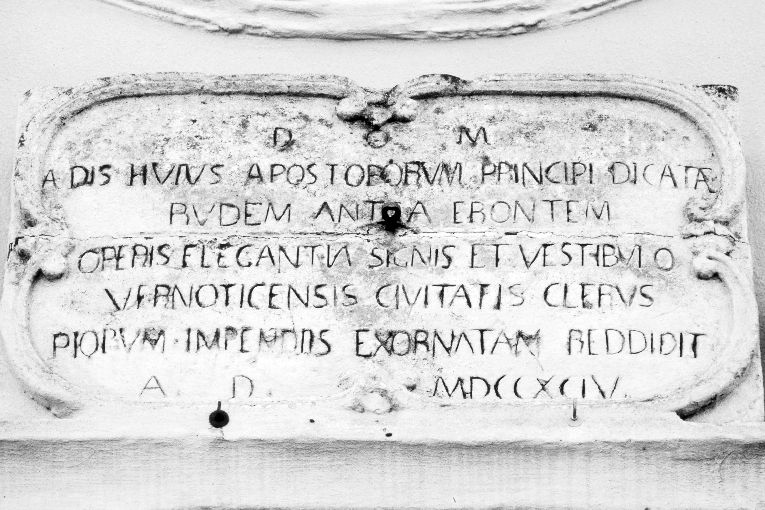 D O M
ÆDIS HVIVS APOSTOLORVM PRINCIPI DICATÆ
RVDEM ANTEA FRONTEM
OPERIS ELEGANTIA SIGNIS ET VESTIBVLO
VERNOTICENSIS CIVITATIS CLERVS
PIORVM IMPENDIIS EXORNATAM REDDIDIT
A. D. MDCCXCIV.